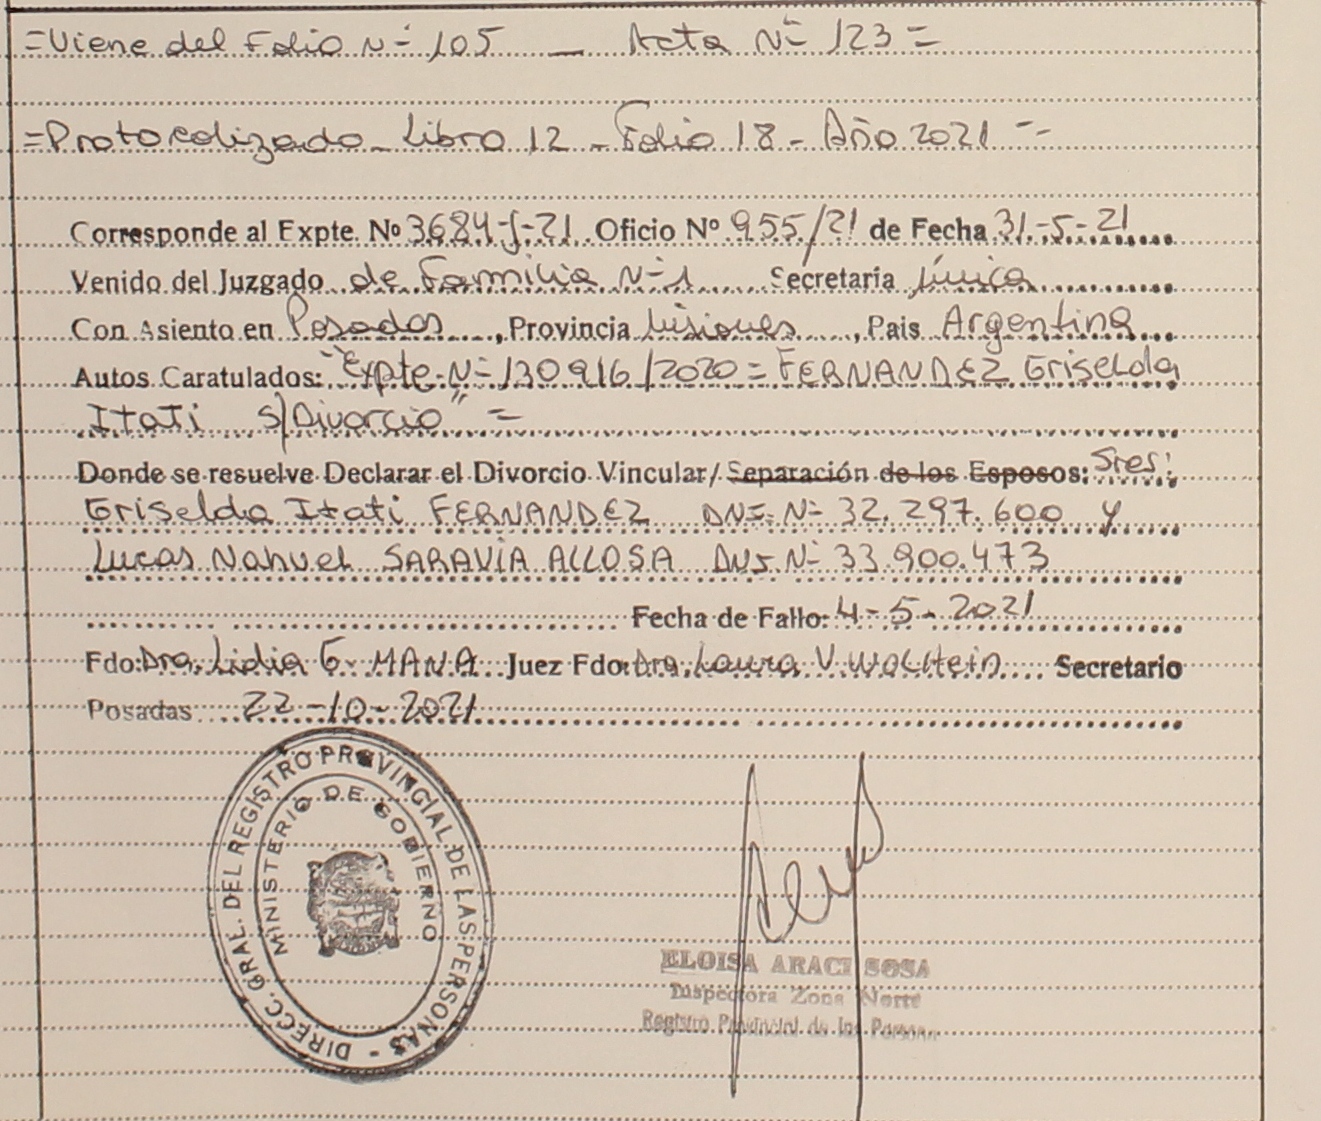 =Viene del Folio Nº 105 _ Acta Nº 123=
=Protocolizado_Libro 12_Folio 18-Año 2021=-
Corresponde al Expte. Nº 3684-J-21 Oficio Nº 955/21 de Fecha 31-5-21
Venido del Juzgado de Familia Nº 1 Secretaria Única
Con Asiento en Posadas, Provincia Misiones, Pais Argentina
Autos Caratulados: "Expte. Nº 130916/2020=FERNANDEZ Griselda
Itati s/Divorcio"=
Donde se resuelve Declarar el Divorcio Vincular/Separación de los Esposos: Sres:
Griselda Itati FERNANDEZ DNI. Nº 32.297.600 y
Lucas Nahuel SARAVIA ALLOSA DNI. Nº 33.900.473
Fecha de Fallo: 4-5-2021
Fdo: Dra. Lidia G. MANA Juez Fdo: Dra. Laura V. Wolhein Secretario
Posadas 22-10-2021
DIRECC. GRAL. DEL REGISTRO PROVINCIAL DE LAS PERSONAS -
MINISTERIO DE GOBIERNO
ELOISA ARACI SOSA
Inspectora Zona Norte
Registro Provincial de las Personas